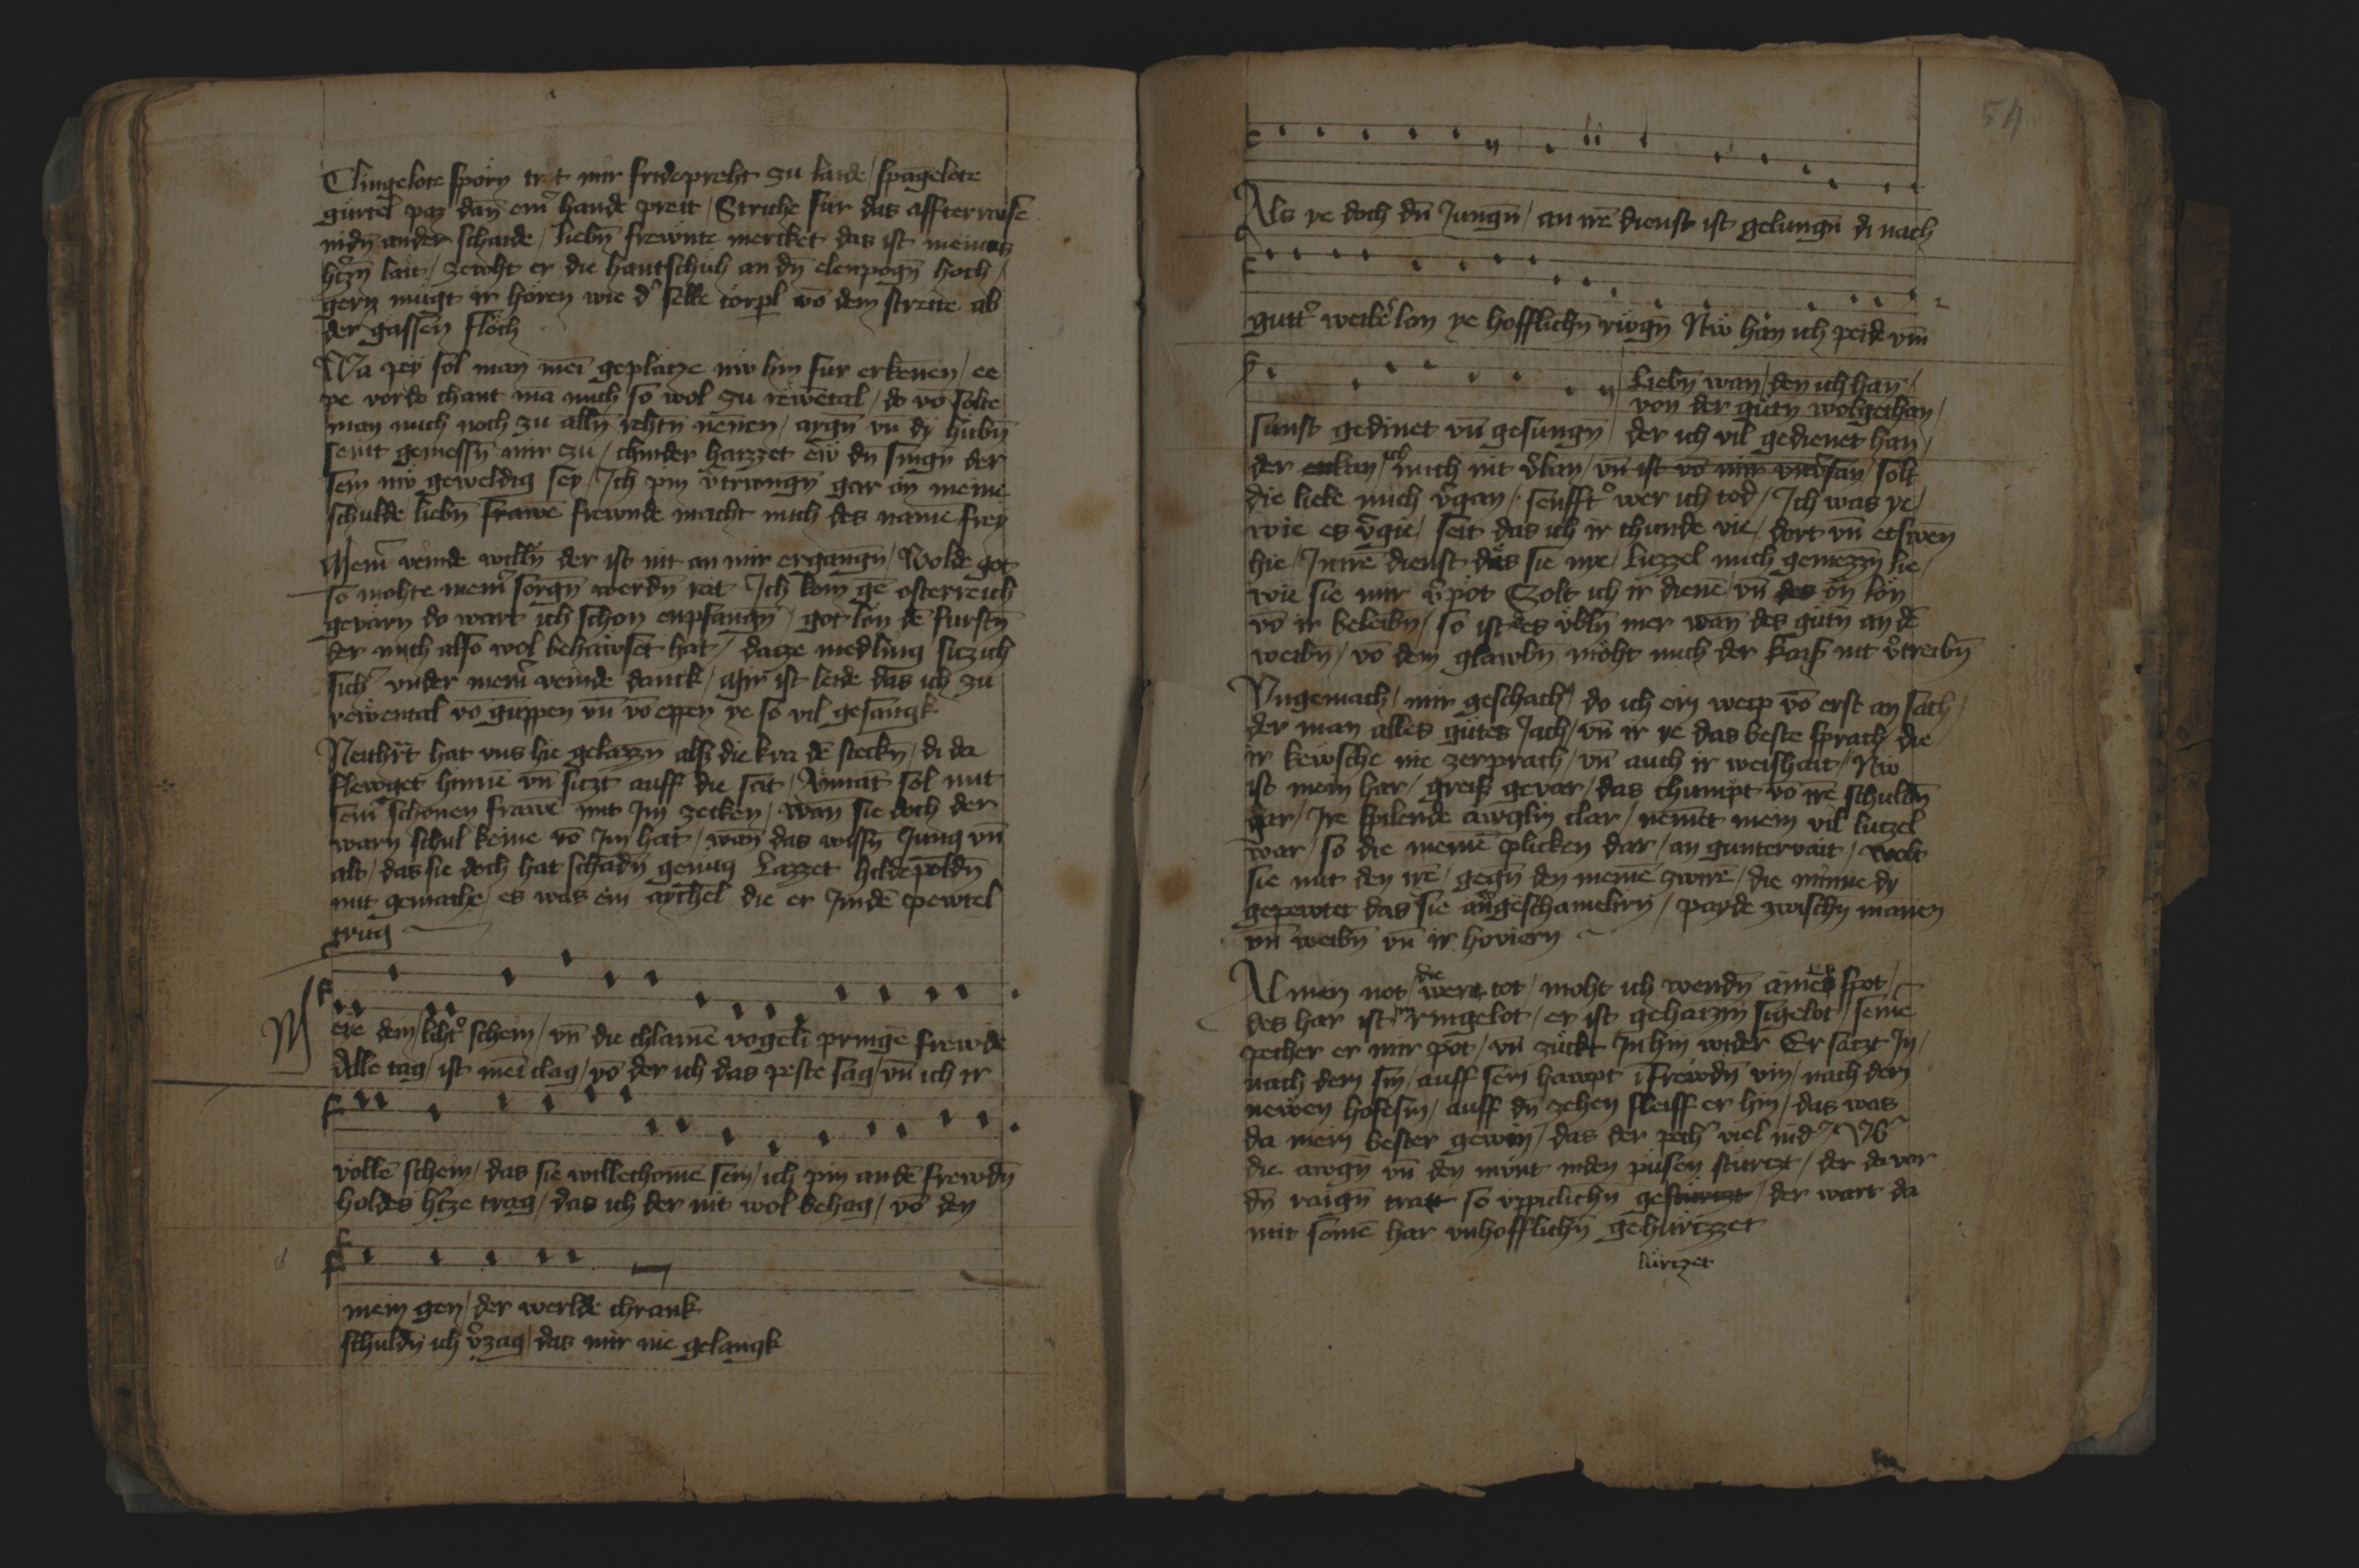 Clingelote sporn tret mir fridepreht zu laide / spāgelote
gürtel paz dan̄ einr hande preit / Striche für das affterraise
nidn̄ an der schaide / liebn̄ frewnte mercket das ist meines
htzn̄ lait / zewht er die hantschuh an dn̄ elenpogn̄ hoch /
gern mügt ir hören wie dr selbe törpl vō dem strette ab
der gassen flöch
Wa pey sol man mei geplätze nw hin für erkenen / ee
pe vor do chant mā mich so wol zu rewental / do vō solte
man mich noch zu alln̄ rehtn̄ nēnen / aygn̄ vn̄ dy hubn̄
seint gemessn̄ mir zu / chinder hazzet ew dn singn̄ der
sein nw geweldig sey / Ich pin vertrungn̄ gar an meine
schulde liebn̄ frawē frewnde macht mich des namē frey
Meinr veinde willn̄ der ist nit an mir ergangn̄ / Wolde got
so mohte meinr sorgn̄ werdn̄ rat Ich kom gē osterreich
gevarn do wart ich schon enpfangn̄ / got lon dē furstn̄
der mich also wol behawset hat / datze medling sitz ich
sichr vnder meinr veinde danck / Mir ist leide das ich zu
rewental vō guppen vn̄ vō eppen ye so vil gesangk
Neithrt hat vns hie gelazzn als die kra dē steckn̄ / di da
flewget hinnē vn̄ siczt auff die sat / Animāt sol mit
seinr schonen frawē mit Im zecken / wan sie doch der
warn schul keine vō Im hat / wan̄ das wissn̄ Jung vn̄
alt / das sie doch hat schadn̄ genug Lazzet hildepoldn̄
mit gemache / es was ein aychel die er Jn dē pewtel
trug
Meye dein / lihtr schein / vn̄ die chlainē vogelī pringē frewde
Alle tag / ist mei clag / vō der ich das peste sag / vn̄ ich ir
vollē schein / das sie willechomē sein / ich pin an dē frewdn̄
holdes htze trag / das ich der nit wol behag / vō den
mein gen / der werlde chrank
schuldn̄ ich vrzag / das mir nie gelangk
54
Als ye doch dn̄ Jungn̄ / an irē dienst ist gelungn̄ di nach
guttr weibr lon ye hofflichn̄ rwgn̄ Nw han ich peide vm̄
sunst gedinet vn̄ gesungn̄
Liebn̄ wan / den ich han /
von der gutn wolgethan /
der ich vil gedienet han /
der enlan / ich mich nit vrlan / vn̄ ist vō mir vnvrsan / solt
die liebe mich vrgan / senfftr wer ich tod / Ich was ye /
wie es vrgie / seit das ich ir chunde vie / dort vn̄ etswen
hie / In irē dienst das sie nye / luzzel mich geniezzn̄ lie /
wie sie mir vrpot Solt ich ir dienē / vn̄ des on lon
vō ir beleibn̄ / so ist des vbln̄ mer wan̄ des gutn̄ an dē
weibn̄ / vō dem glawbn̄ möht mich der kaiß nit vrtreibn̄
Vngemach / mir geschach / do ich ein weip vō erst an sach /
der man alles gutes Jach / vn̄ ir ye das beste sprach / die
ir kewsche nie zerprach / vn̄ auch ir weishait / Nw
ist mein har / greiß gevar / das chumpt vō irē schuldn̄
gar / Ire spilende awglin clar / nemēt mein vil lutzel
war / so die meinē plicken dar / an guntervait / wolt
sie mit den irē / gegn̄ den meinē zwirē / die minne dy
gepewtet das sie an geschamelirn̄ / payde zwischn̄ mānen
vn̄ weibn̄ vn̄ ir hoviern
Al mein not / die were tot / moht ich wendn̄ aines spot /
des har ist ringelot / er ist geharzin sigelot / seinē
pecher er mir pot / vn̄ zückt In hin wider Er satzt In /
nach dem sin / auff sein hawpt ī frewdn̄ vin / nach dem
newen hofesin / auff dn̄ zehen sleiff er hin / das was
da mein bester gewin / das der pechr viel nidr / Vbr
die awgn̄ vn̄ den munt in den pusen sturtzt / der da vor
dn̄ raign̄ tratt so vppiclichn̄ gesturtzt / der wart da
mit seinē har vnhofflichn̄ gehurtzzet
kürtzet